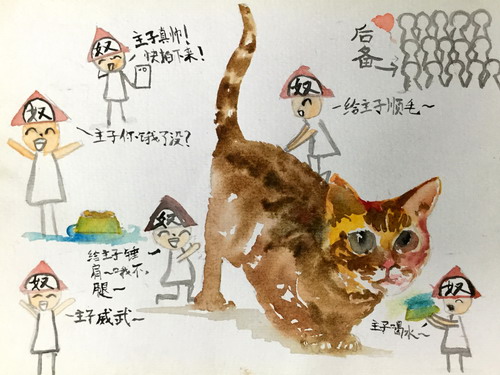 奴
主子真帅!
快拍下来!
后
备
奴
给主子顺毛~
奴
主子你饿了没?
奴
给主子锤
肩~哦不,
腿~
奴
主子威武~
奴
主子喝水~